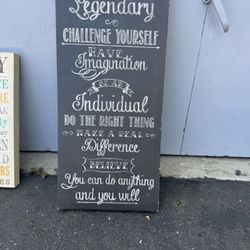 Legendary
CHALLENGE YOURSELF
HAVE
Imagination
BE AN
Individual
DO THE RIGHT THING
MAKE A REAL
Difference
BELIEVE
You can do anything
and you will